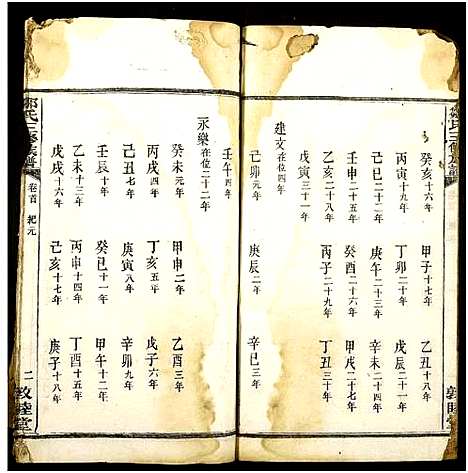 丙寅十九年 丁卯二十年 戊辰二十一年
己巳二十二年 庚午二十三年 辛未二十四年
壬申二十五年 癸酉二十六年 甲戌二十七年
乙亥二十八年 丙子二十九年 丁丑三十年
戊寅三十一年
建文在位四年
己卯元年 庚辰二年 辛巳三年
壬午四年
永樂在位二十二年
癸未元年 甲申二年 乙酉三年
丙戌四年 丁亥五年 戊子六年
己丑七年 庚寅八年 辛卯九年
壬辰十年 癸巳十一年 甲午十二年
乙未十三年 丙申十四年 丁酉十五年
戊戌十六年 己亥十七年 庚子十八年
鄒氏三修族譜 卷首 紀元 二 敦睦堂